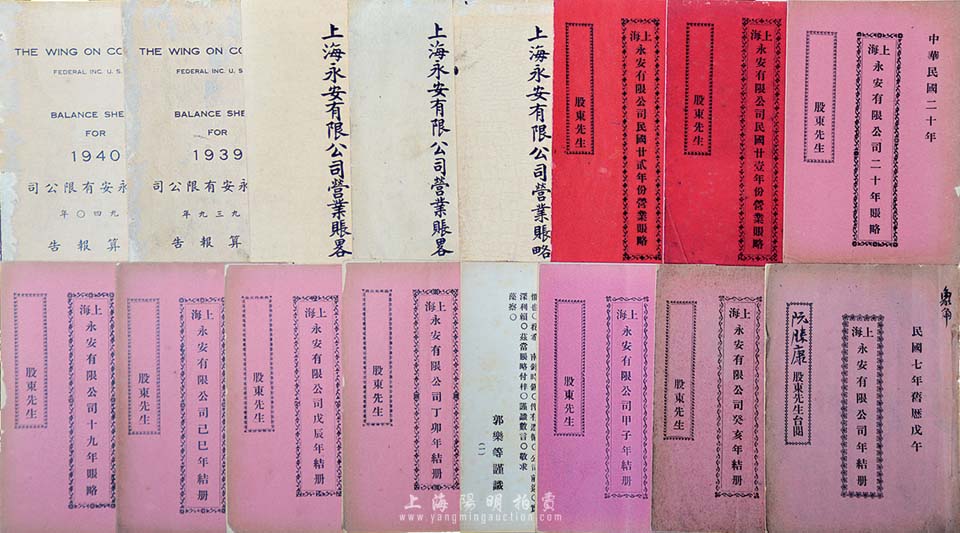 THE WING ON CO
FEDERAL INC. U. S.
BALANCE SHE
FOR
1940
司公限有安永
年〇四九
告報算
THE WING ON CO
FEDERAL INC. U. S.
BALANCE SHE
FOR
1939
司公限有安永
年九三九
告報算
上海永安有限公司營業賬畧
上海永安有限公司營業賬畧
上海永安有限公司營業賬略
上海永安有限公司民國廿貳年份營業賬略
股東先生
上海永安有限公司民國廿壹年份營業賬略
股東先生
中華民國二十年
上海永安有限公司二十年賬略
股東先生
上海永安有限公司十九年賬略
股東先生
上海永安有限公司己巳年結册
股東先生
上海永安有限公司戊辰年結册
股東先生
上海永安有限公司丁卯年結册
股東先生
深利頼〇茲當賬略付梓〇謹識數言〇敬求
蔭察〇
郭樂等謹識
(一)
上海永安有限公司甲子年結册
股東先生
上海永安有限公司癸亥年結册
股東先生
民國七年舊歷戊午
上海永安有限公司年結册
阮勝康股東先生台閱
上海陽明拍賣
www.yangmingauction.com